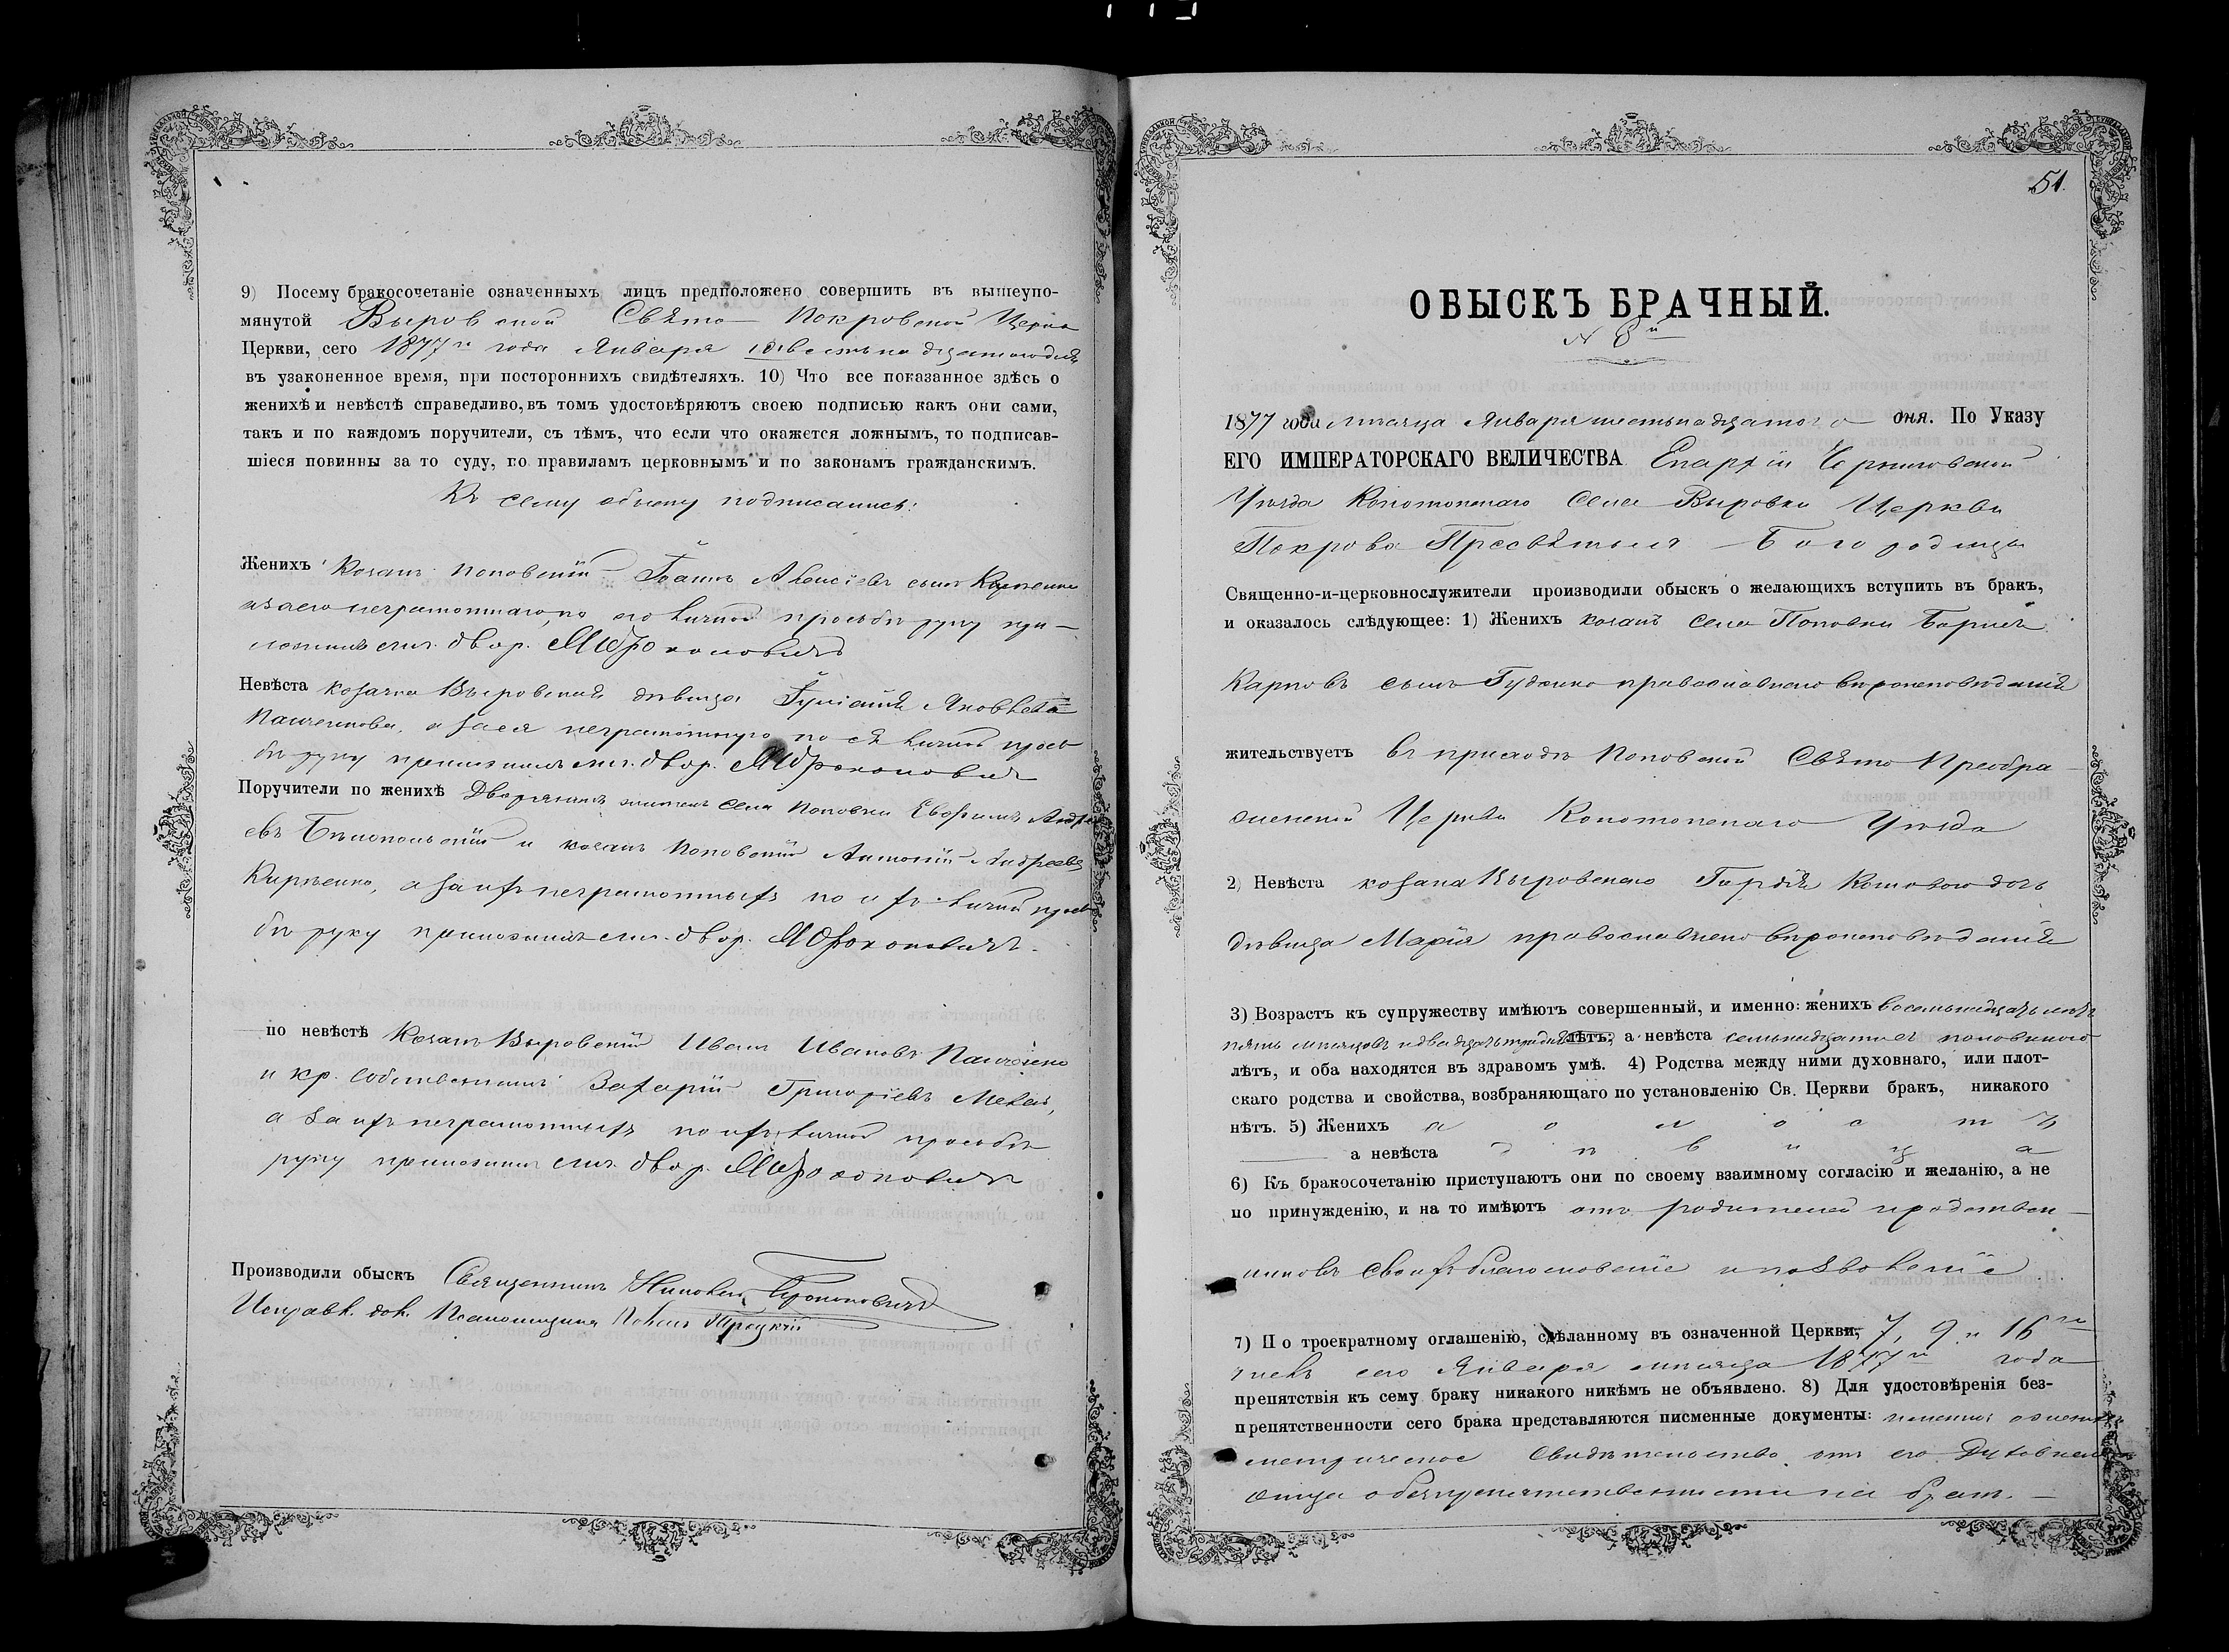 9) Посему бракосочетаніе означенныхъ лицъ предположено совершить въ вышеупо-
мянутой Выровской Свято Покровской
Церкви, сего 1877го года Января дня
въ узаконенное время, при постороннихъ свидѣтеляхъ. 10) Что все показанное здѣсь о
женихѣ и невѣстѣ справедливо, въ томъ удостовѣряютъ своею подписью какъ они сами,
такъ и по каждомъ поручители, съ тѣмъ, что если что окажется ложнымъ, то подписав-
шіеся повинны за то суду, по правиламъ церковнымъ и по законамъ гражданскимъ.
Къ сему обыску подписались:
Женихъ козакъ Поповскій Іоаннъ Алексіевъ сынъ
а за его неграмотнаго, по его личной просьбѣ руку при-
ложилъ двор.
Невѣста козачка Выровская дѣвица Іуліанія Яковлева
а за ея неграмотную по ея личной прось-
бѣ руку приложилъ двор.
Поручители по женихѣ Дворянинъ житель села Поповки
и козакъ Поповскій Антоній Андреевъ
а за ихъ неграмотныхъ по ихъ личной прось-
бѣ руку приложилъ двор.
по невѣстѣ Козакъ Выровскій Иванъ Ивановъ
и кр. собственникъ Захарій Григоріевъ
а за ихъ неграмотныхъ по ихъ личной просьбѣ
руку приложилъ двор.
Производили обыскъ Священникъ
Исправл. дол. Псаломщика Троцкій
51.
ОБЫСКЪ БРАЧНЫЙ.
N 8й
1877 года мѣсяца Января шестьнадцатого дня. По Указу
ЕГО ИМПЕРАТОРСКАГО ВЕЛИЧЕСТВА Епархіи Черниговской
Уѣзда Конотопскаго Села Выровки Церкви
Покрова Пресвятыя Богородицы
Священно-и-церковнослужители производили обыскъ о желающихъ вступить въ бракъ,
и оказалось слѣдующее: 1) Женихъ козакъ села Поповки Борисъ
Карповъ сынъ Гуденко православнаго вѣроисповѣданія
жительствуетъ въ приходѣ Поповской Свято Преобра-
женской Церкви Конотопскаго Уѣзда
2) Невѣста козака Выровскаго Гордія дочь
дѣвица Марія православнаго вѣроисповѣданія
3) Возрастъ къ супружеству имѣютъ совершенный, и именно: женихъ восемьнадцать лѣтъ
пять мѣсяцовъ и двадцать три дня лѣтъ, а невѣста семьнадцати съ половиною
лѣтъ, и оба находятся въ здравомъ умѣ. 4) Родства между ними духовнаго, или плот-
скаго родства и свойства, возбраняющаго по установленію Св. Церкви бракъ, никакого
нѣтъ. 5) Женихъ холостъ
а невѣста дѣвица
6) Къ бракосочетанію приступаютъ они по своему взаимному согласію и желанію, а не
по принужденію, и на то имѣютъ отъ родителей и родствен-
никовъ своихъ благословеніе и позволеніе
7) По троекратному оглашенію, сдѣланному въ означенной Церкви, 7, 9 и 16го
чиселъ сего Января мѣсяца 1877го года
препятствія къ сему браку никакого никѣмъ не объявлено. 8) Для удостовѣренія без-
препятственности сего брака представляются писменные документы:
метрическое свидѣтельство отъ его Духовнаго
отца о безпрепятственности на бракъ.